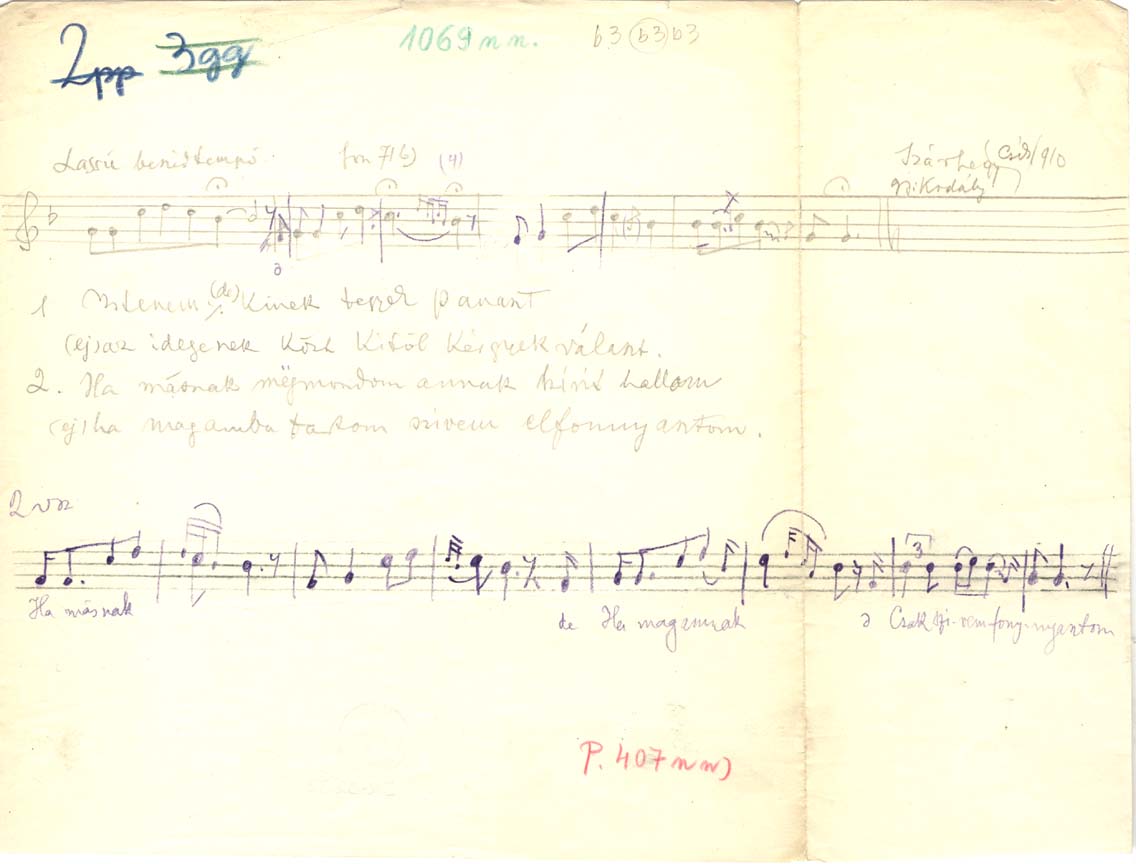 2pp 3gg 1069 n n. b3 (b3) b3
Lassú beszédtempó. fon 71b) (4)
Szárhegy Csík/910
gy. Kodály
1 Istenem (de) kinek teszek panaszt
(ej) az idegenek közt kitől kérgyekválaszt.
2. Ha másnak mëgmondom annak hírit hallom
(ej) ha magamba tartom szivem elfonnyasztom.
2 vsz
3
Ha másnak de Ha magamnak ə Csak szi-vem fony-nyasztom
P. 407 n n)